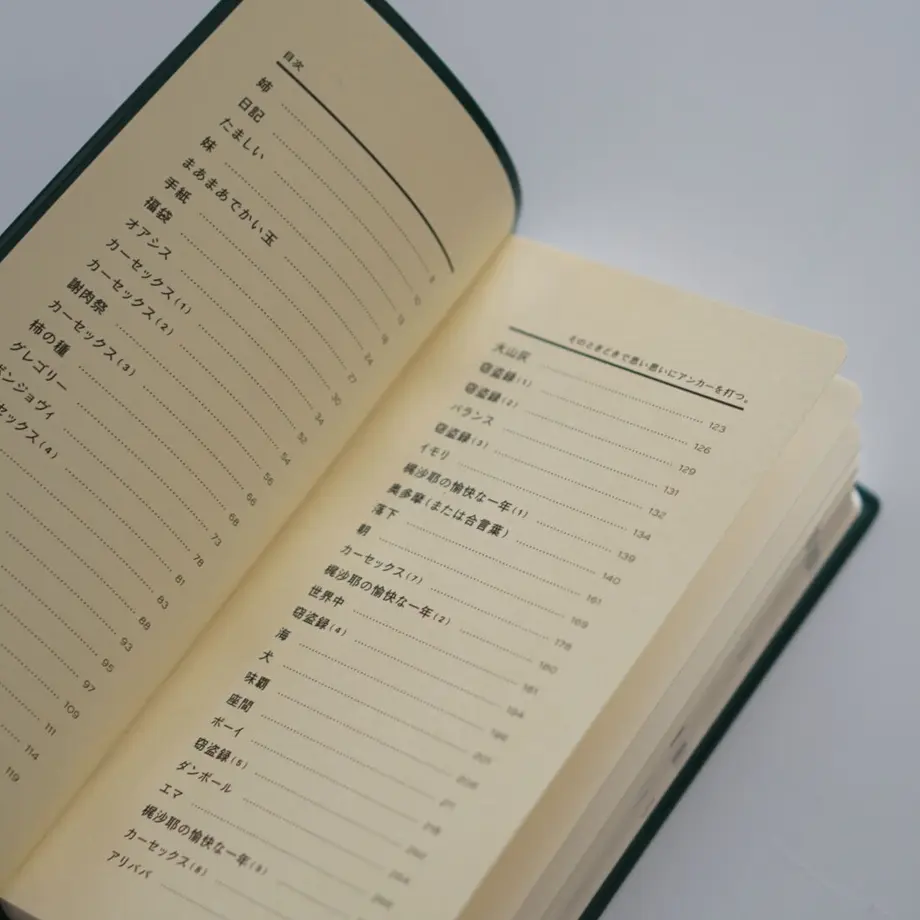 目次
姉
日記
たましい
妹
まあまあでかい玉 24
手紙 27
福袋 30
オアシス 34
カーセックス(1) 52
カーセックス(2) 54
謝肉祭 56
カーセックス(3) 66
柿の種 68
グレゴリー 73
ンジョヴィ 78
セックス(4) 81
83
88
93
95
97
109
111
114
119
そのときどきで思い思いにアンカーを打つ。
火山灰 123
窃盗録(1) 126
窃盗録(2) 129
バランス 131
窃盗録(3) 132
イモリ 134
梶沙耶の愉快な一年(1) 139
奥多摩(または合言葉) 140
落下 161
朝 169
カーセックス(7) 176
梶沙耶の愉快な一年(2) 180
世界中 181
窃盗録(4) 194
海
犬
味覇
座間
ボーイ
窃盗録(5)
ダンボール
エマ
梶沙耶の愉快な一年(3)
カーセックス(8)
アリババ